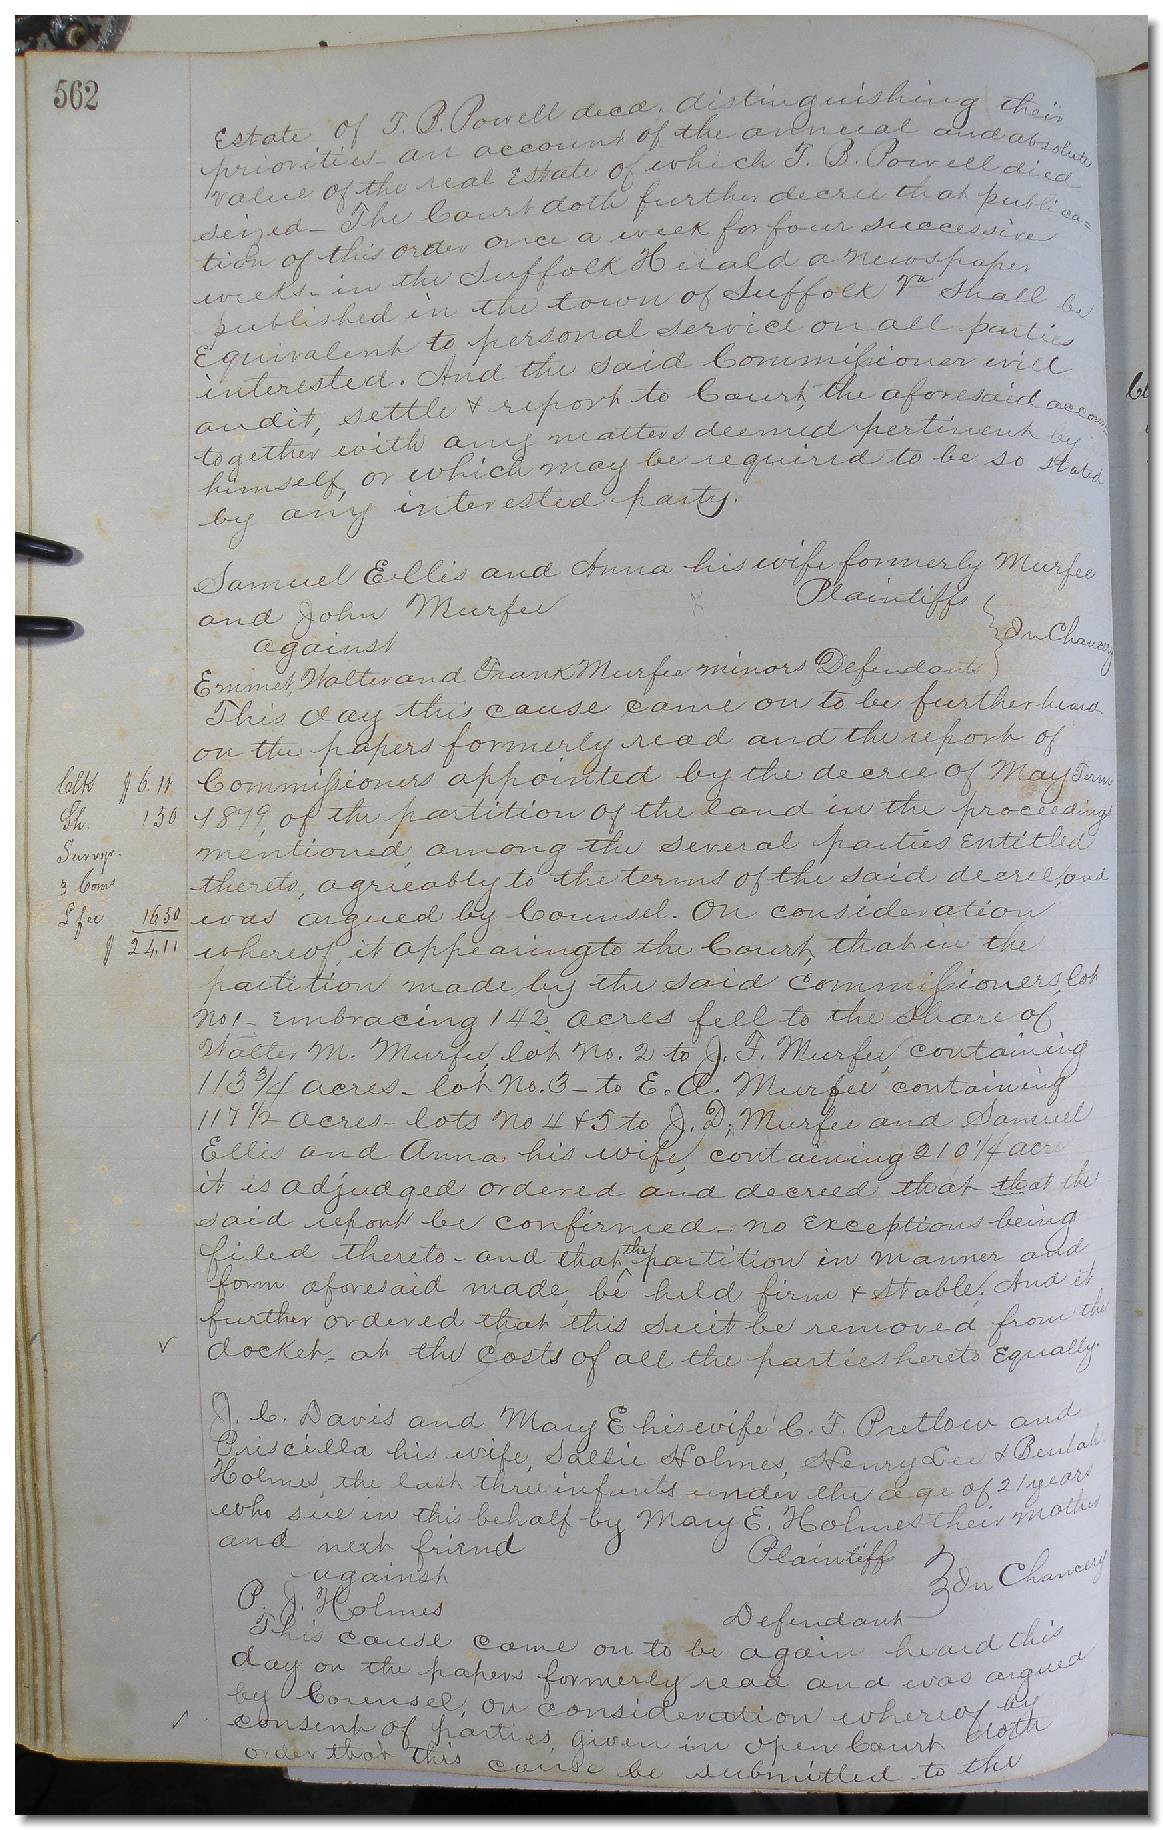 562
Estate of T. B. Powell decd. distinguishing their
priorities - an account of the annual and absolute
value of the real Estate of which T. B. Powell died
seized - The Court doth further decree that publica=
tion of this order once a week for four successive
weeks - in the Suffolk Herald a Newspaper
published in the town of Suffolk Va shall be
Equivalent to personal service on all parties
interested. And the said Commissioner will
audit, settle & report to Court, the aforesaid account
together with any matters deemed pertinent by
himself, or which may be required to be so stated
by any interested party.
Samuel Ellis and Anna his wife formerly Murfee
and John Murfee Plaintiffs
against In Chancery
Emmet, Walter and Frank Murfee minors Defendants
This day this cause came on to be further heard
on the papers formerly read and the report of
Clk $6.11 Commissioners appointed by the decree of May Term
Sh. 150 1879, of the partition of the land in the proceedings
Survyr. mentioned, among the several parties entitled
3 Coms thereto, agreeably to the terms of the said decree, and
L fee 16.50 was argued by Counsel. On consideration
$ 24.11 whereof, it appearing to the Court, that in the
partition made by the said Commissioners, lot
No 1 - Embracing 142 acres fell to the share of
Walter M. Murfee, lot No. 2 to J. F. Murfee, containing
113 3/4 acres - lot No. 3 - to E. A. Murfee containing
117 1/2 acres - lots No 4 & 5 to J. D. Murfee and Samuel
Ellis and Anna his wife, containing 210 1/4 acre
it is adjudged ordered and decreed that that the
said report be confirmed - no Exceptions being
filed thereto - and that the partition in manner and
form aforesaid made, be held firm & stable. And it
further ordered that this suit be removed from the
docket - at the Costs of all the parties hereto Equally.
J. C. Davis and Mary E his wife C. F. Pretlow and
Priscilla his wife, Sallie Holmes, Henry Lee & Beulah
Holmes, the last three infants under the age of 21 years
who sue in this behalf by Mary E. Holmes their mother
and next friend Plaintiff
against In Chancery
P. J. Holmes Defendant
This cause came on to be again heard this
day on the papers formerly read and was argued
by Counsel, on consideration whereof by
consent of parties, given in open Court doth
order that this cause be submitted to the